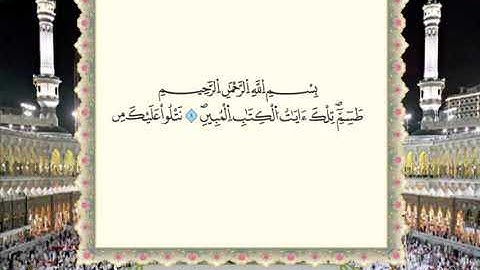 بِسْمِ اِللَّهِ اِلرَّحْمَٰنِ اِلرَّحِيمِ
طَسِٓمِّٓۖ تِلْكَ ءَايَٰتُ اُلْكِتَٰبِ اِلْمُبِينِۖ ١ نَتْلُواْ عَلَيْكَ مِن